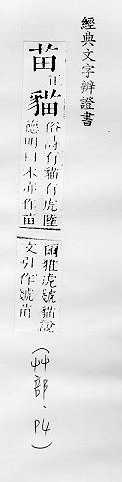 經典文字辨證書
苗正
貓俗詩有貓有虎陸
德明曰本亦作苗
爾雅虎號貓說
文引作號苗
(艸部.P4)